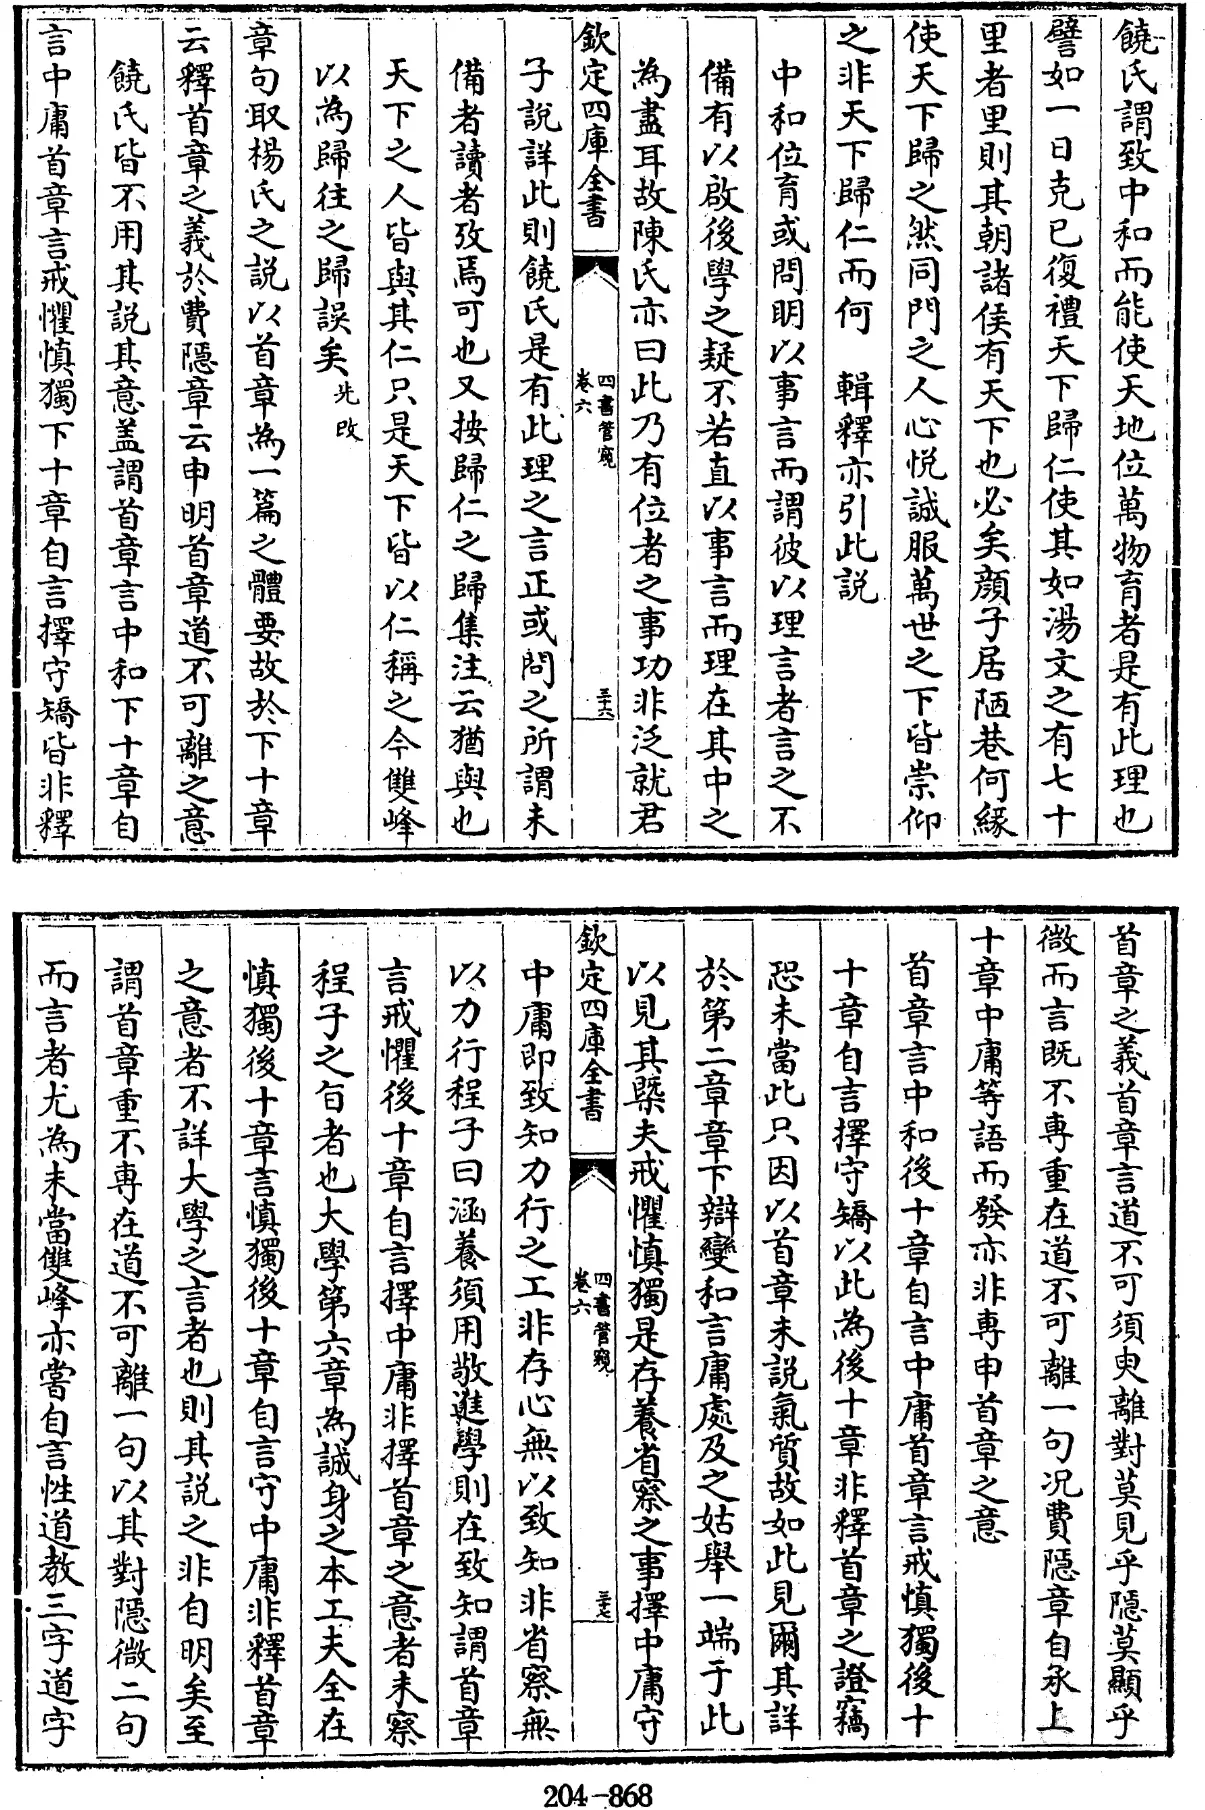 饒氏謂致中和而能使天地位萬物育者是有此理也
譬如一日克已復禮天下歸仁使其如湯文之有七十
里者里則其朝諸侯有天下也必矣顔子居陋巷何緣
使天下歸之然同門之人心悦誠服萬世之下皆崇仰
之非天下歸仁而何　輯釋亦引此説
中和位育或問明以事言而謂彼以理言者言之不
備有以啟後學之疑不若直以事言而理在其中之
為盡耳故陳氏亦曰此乃有位者之事功非泛就君
欽定四庫全書
四書管窺
卷六
三十六
子説詳此則饒氏是有此理之言正或問之所謂未
備者讀者攷焉可也又按歸仁之歸集注云猶與也
天下之人皆與其仁只是天下皆以仁稱之今雙峰
以為歸往之歸誤矣先改
章句取楊氏之説以首章為一篇之體要故於下十章
云釋首章之義於費隱章云申明首章道不可離之意
饒氏皆不用其説其意盖謂首章言中和下十章自
言中庸首章言戒懼慎獨下十章自言擇守矯皆非釋
首章之義首章言道不可須臾離對莫見乎隱莫顯乎
微而言既不專重在道不可離一句况費隱章自承上
十章中庸等語而發亦非專申首章之意
首章言中和後十章自言中庸首章言戒慎獨後十
十章自言擇守矯以此為後十章非釋首章之證竊
恐未當此只因以首章未説氣質故如此見爾其詳
於第二章章下辯變和言庸處及之姑舉一端于此
以見其槩夫戒懼慎獨是存養省察之事擇中庸守
欽定四庫全書
四書管窺
卷六
三十七
中庸即致知力行之工非存心無以致知非省察無
以力行程子曰涵養須用敬進學則在致知謂首章
言戒懼後十章自言擇中庸非擇首章之意者未察
程子之旨者也大學第六章為誠身之本工夫全在
慎獨後十章言慎獨後十章自言守中庸非釋首章
之意者不詳大學之言者也則其説之非自明矣至
謂首章重不專在道不可離一句以其對隱微二句
而言者尤為未當雙峰亦嘗自言性道教三字道字
204-868